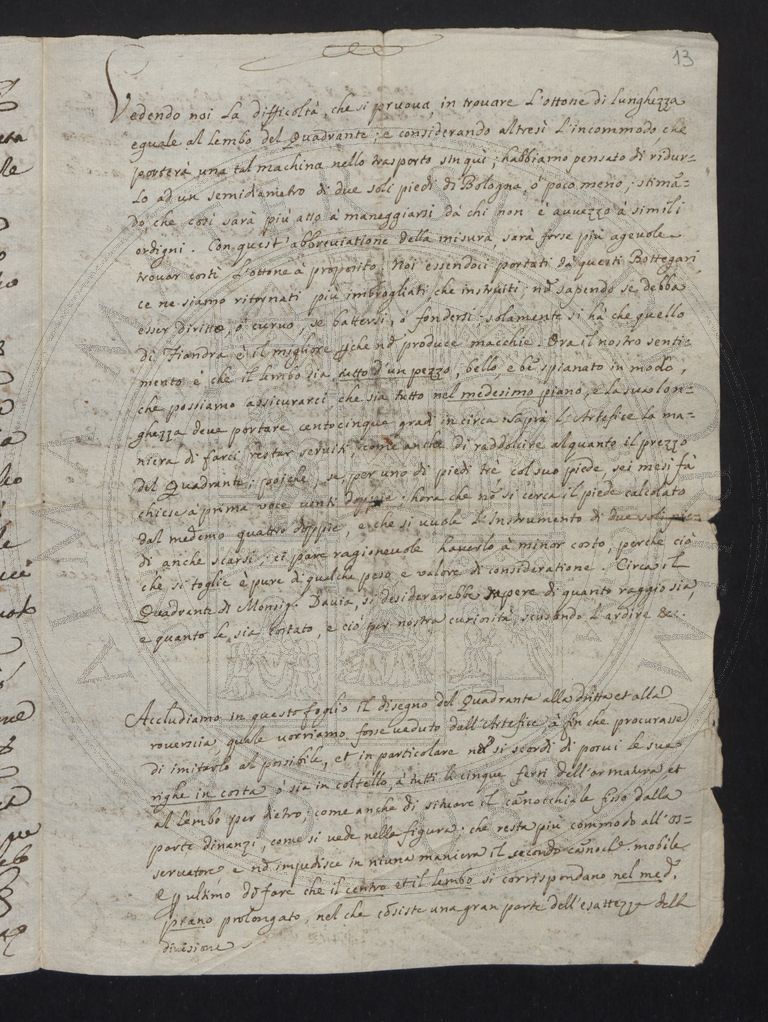 13
Vedendo noi La difficoltà, che si pruoua, in trouare L'ottone di lunghezza
eguale al Lembo del Quadrante; e considerando altresi L'incommodo che
porterà una tal machina nello trasporto sin qui; habbiamo pensato di ridur=
Lo ad un semidiametro di due soli piedi di Bologna, ò poco meno; stimã=
do che così sarà più atto à maneggiarsi da chi non è auuezzo à simili
ordigni. Con quest'abbreuiatione della misura sarà forse più ageuole
trouar costì L'ottone à proposito. Noi essendoci portati da questi Bottegari
ce ne siamo ritornati più imbrogliati, che instruiti; nõ sapendo se debba
esser diritto, ò curuo, se battersi, ò fondersi: solamente si hà che quello
di Fiandra è il migliore che nõ produce macchie. Ora il nostro senti=
mento è che il Lembo sia tutto d'un pezzo, bello, e bẽ spianato in modo,
che possiamo assicurarci che sia tutto nel medesimo piano, e la sua lon=
ghezza deue portare centocinque gradi in circa. Saprà L'Artefice la ma=
niera di farci restar seruiti, come anche di raddolcire alquanto il prezzo
del Quadrante; poiche, se per uno di piedi trè col suo piede, sei mesi fà
chiese à prima voce uenti doppie; hora che nõ si cerca il piede calcolato
dal medemo quattro doppie, e che si vuole L'Instrumento di due soli pie=
di anche scarsi; ci pare ragioneuole hauerlo à minor costo, perche ciò
che si toglie è pure di qualche peso e valore di consideratione. Circa il
Quadrante di Monsig.r Dauia, si desiderarebbe sapere di quanto raggio sia,
e quanto le sia costato, e ciò per nostra curiosità, scusando L'ardire &c.
Accludiamo in questo foglio il disegno del Quadrante alla dritta et alla
rouerscia, quale uorriamo fosse ueduto dall'Artefice à fin che procurasse
di imitarlo al possibile, et in particolare nõ si scordi di porui le sue
righe in costa ò sia in coltello, à tutti li cinque ferri dell'armatura et
al Lembo per dietro; come anche di situare il canocchiale fisso dalla
parte dinanzi, come si vede nella figura; che resta più commodo all'os=
seruatore e nõ impedisce in niuna maniera il secondo canoch.e mobile
E ultimo di fare che il centro et il lembo si corrispondano nel med.o
piano prolongato, nel che cõsiste una gran parte dell'esattezza della
diuisione